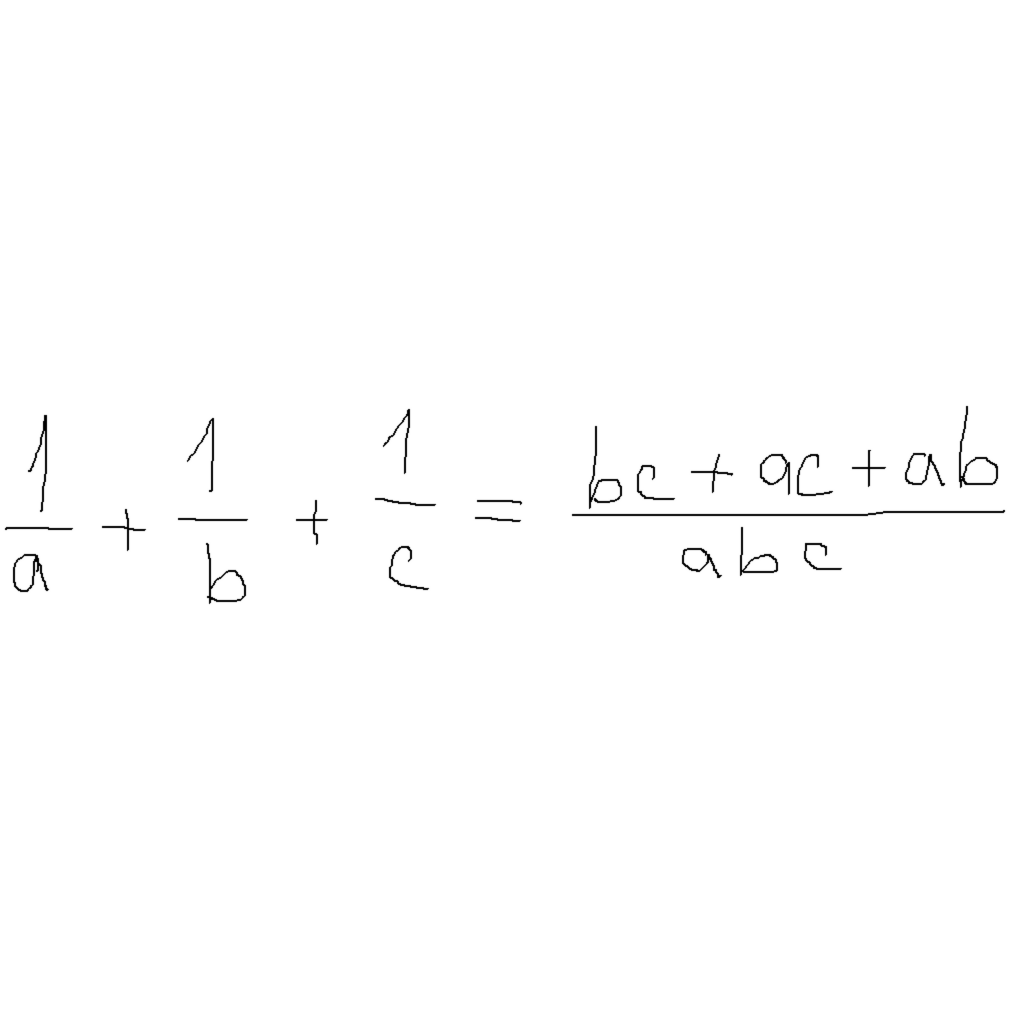 1/a + 1/b + 1/c = (bc + ac + ab)/(abc)